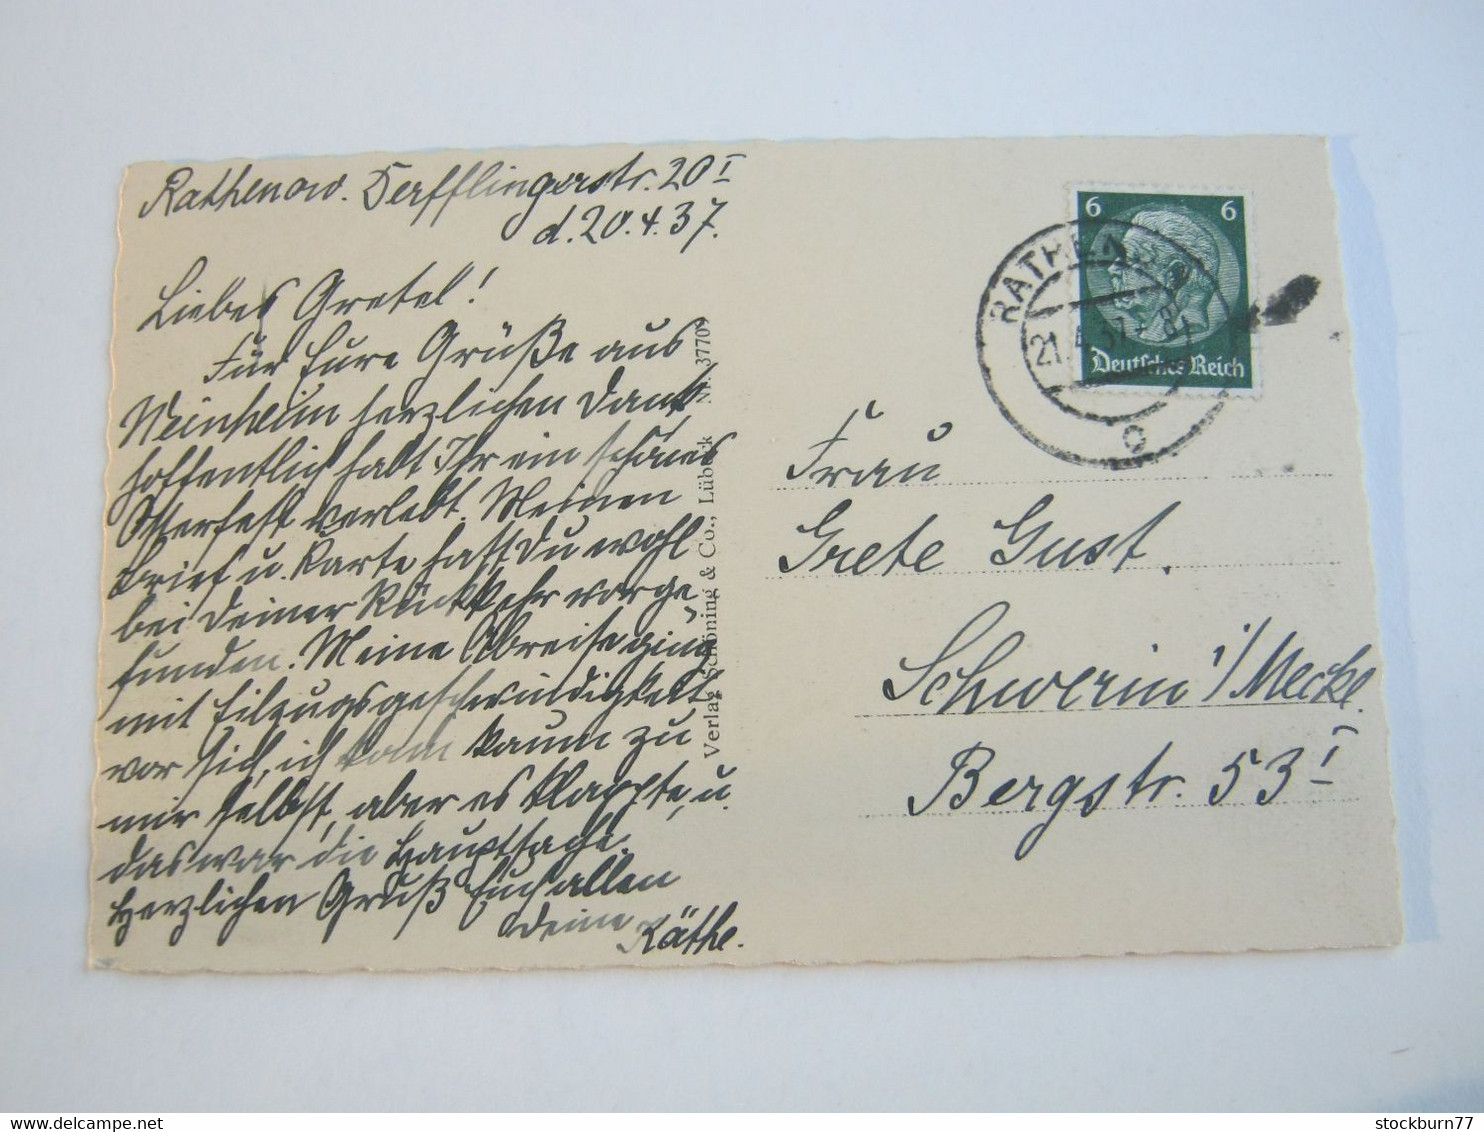 Rathenow. Derfflingerstr. 20 I
d. 20.4.37.
Liebes Gretel!
Für Eure Grüße aus
Weinheim herzlichen Dank,
hoffentlich habt Ihr ein schönes
Osterfest verlebt. Meinen
Brief u. Karte hast Du wohl
bei Deiner Rückkehr vorge-
funden. Meine Abreise ging
mit Eilzugsgeschwindigkeit
vor sich, ich kam kaum zu
mir selbst, aber es klappte, u.
das war die Hauptsache.
Herzlichen Gruß Euch allen
Deine Käthe.
Verlag Schöning & Co., Lübeck Nr. 37709
6 6
Deutsches Reich
RATHEN
21. 4. 37
Frau
Grete Gust.
Schwerin i/Meckl.
Bergstr. 53 I
stockburn77